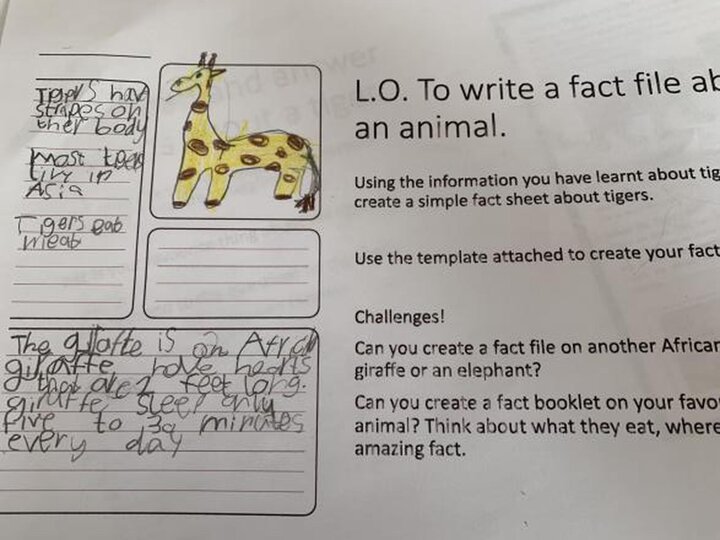 Tigers have
stripes on
ther body
most
livy in
Asia
Tigers eat
meat
The giraffe is an Afrcn
giraffe have hearts
that are 2 feet long.
giraffe sleep only
five to 30 minutes
every day
L.O. To write a fact file ab
an animal.
Using the information you have learnt about tig
create a simple fact sheet about tigers.
Use the template attached to create your fact
Challenges!
Can you create a fact file on another African
giraffe or an elephant?
Can you create a fact booklet on your favo
animal? Think about what they eat, where
amazing fact.